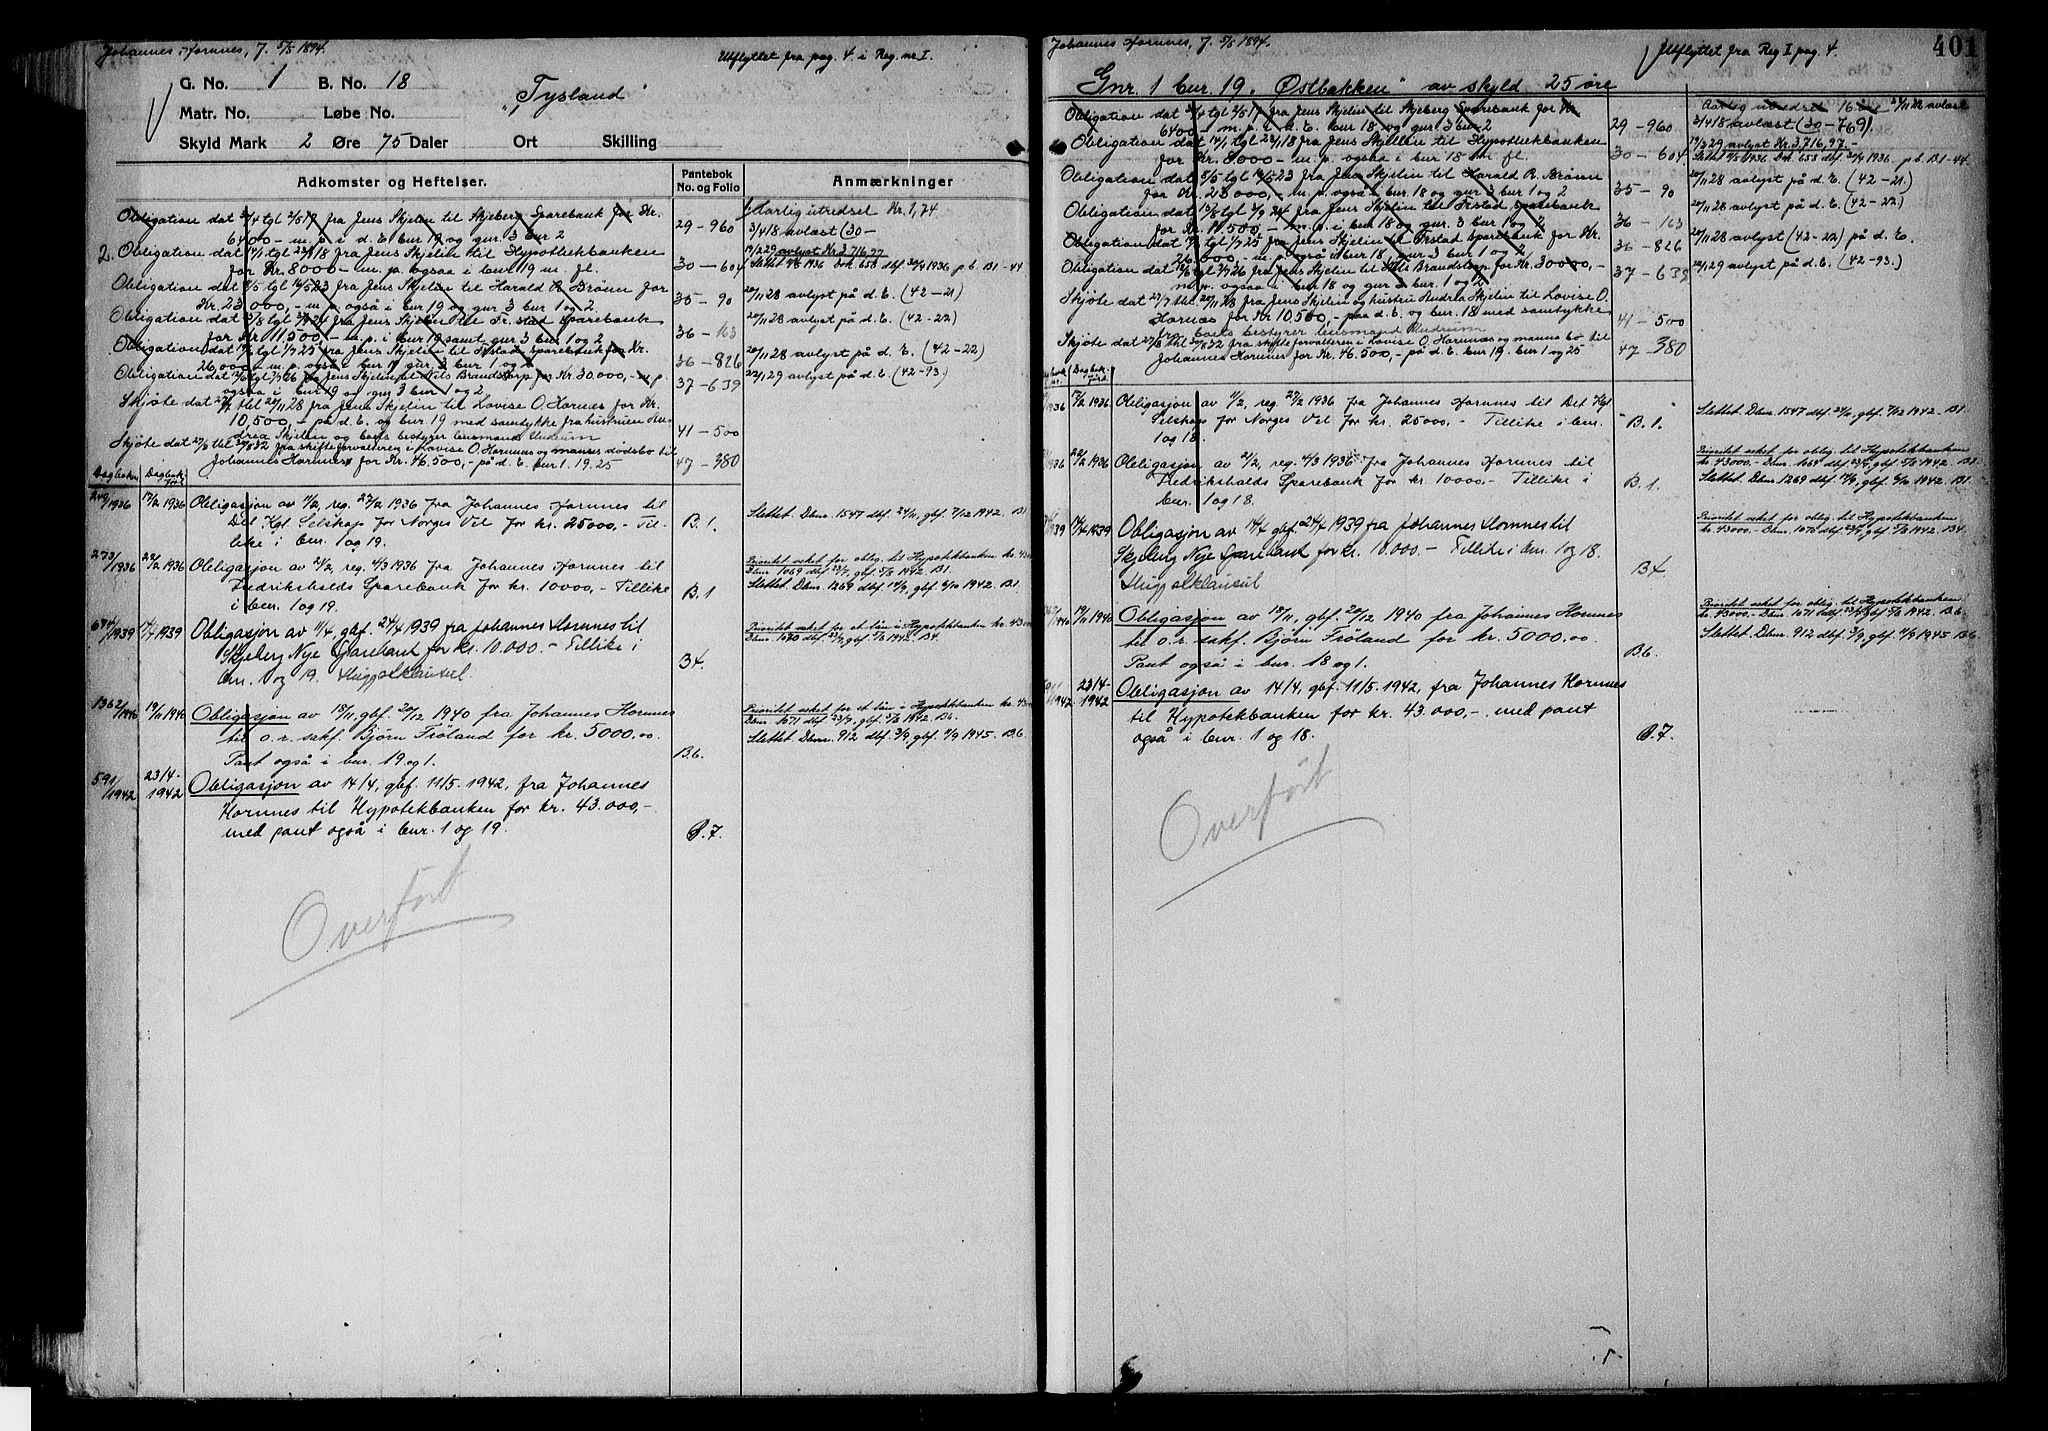 Johannes Hornnes, f. 5/5 1894.
Utflyttet fra pag. 4 i Reg. nr I.
G. No. 1 B. No. 18
"Tysland"
Matr. No. Løbe No.
Skyld Mark 2 Øre 75 Daler Ort Skilling
Adkomster og Heftelser.
Pantebok No. og Folio
Anmærkninger
Obligation dat tgl 2/5 17 fra Jens Skjelin til Skjeberg Sparebank for Kr. 6400 - m. p. i d. E. bnr 19 og gnr. 3 bnr 2
29-960
Aarlig utredsel Kr. 1,74
3/4 18 avlæst (30-
2. Obligation dat 14/1 tgl 22/1 18 fra Jens Skjelin til Hypothekbanken
for Kr. 8000 - m. p. ogsaa i bnr 19 m. fl.
30-604
19/3 29 avlyst Kr. 3716,97
Slettet 1936 Dok 653 dbf 30/4 1936 p. b. B1-44
Obligation dat 8/5 tgl 14/5 23 fra Jens Skjelin til Harald R. Brönn for
Kr. 23 000, - m. p. også i bnr 19 og gnr 3 bnr 1 og 2
35-90
20/11 28 avlyst på d. E. (42-21)
Obligation dat 13/8 tgl 3/9 24 fra Jens Skjelin til Fr.stad Sparebank
for Kr 11.500 - m. p. i bnr 19 samt gnr 3 bnr 1 og 2
36-163
20/11 28 avlyst på d. E. (42-22)
Obligation dat tgl 1/7 25 fra Jens Skjelin til Fr.stad Sparebank for Kr.
26,000 - m. p. også i bnr 19 gnr. 3 bnr 1 og 2
36-826
20/11 28 avlyst på d. E. (42-22)
Obligation dat tgl 26 fra Jens Skjelin til Nils Brandstorp for Kr. 30.000, - m. p.
ogsaa i bnr 19 og gnr 3 bnr 1 og 2
37-639
22/1 29 avlyst på d. E. (42-93)
Skjøte dat 27/7 tbl 20/11 28 fra Jens Skjelin til Lovise O. Hornæs for Kr.
10,500, - på d. E. og bnr 19 med samtykke fra hustruen An-
drea Skjelin og boets bestyrer lensmand Rudrum
41-500
Skjøte dat 27/8 tbl 30/8 32 fra skifteforvalteren i Lovise O. Hornnæs og mannes dødsbo til
Johannes Hornnes for Kr. 46.500, - på d. E. bnr 1. 19. 25
47-380
Dagboknr Dagbokførd
249/1936 17/2 1936 Obligasjon av 11/2, reg. 27/2 1936 fra Johannes Hornnes til
Det Kgl. Selskap for Norges Vel for kr. 25000, - Til-
like i bnr. 1 og 19.
B. 1.
Slettet. Dbnr. 1547 dbf. 24/11, gbf. 7/12 1942. B1
273/1936 22/2 1936 Obligasjon av 21/2, reg. 4/3 1936 fra Johannes Hornnes til
Fredrikshalds Sparebank for kr. 10000, - Tillike
i bnr. 1 og 19.
B. 1
Prioritet veket for oblig. til Hypotekbanken kr. 43000
Dbnr. 1069 dbf. 23/7, gbf. 5/8 1942 B1.
Slettet. Dbnr. 1269 dbf. 17/9, gbf. 6/10 1942. B1.
674/1939 17/4 1939 Obligasjon av 11/4, gbf. 24/4 1939 fra Johannes Hornnes til
Skjeberg Nye Sparebank for kr. 10.000. - Tillike i
bnr. 1 og 19. Huggstklausul
B4.
Prioritet veket for et lån i Hypotekbanken kr. 43000
Dbnr. 1070 dbf. 23/7, gbf. 5/8 1942 B4.
1362/1940 19/11 1940 Obligasjon av 18/11, gbf. 20/12 1940 fra Johannes Hornnes
til o. r. sakf. Bjørn Frøland for kr. 5000.00
Pant også i bnr. 19 og 1.
B.6.
Prioritet veket for et lån i Hypotekbanken kr. 43000
Dbnr. 1071 dbf. 23/7, gbf. 5/8 1942 B6.
Slettet. Dbnr. 912 dbf. 3/9, gbf. 4/9 1945. B.6
591/1942 23/4-1942 Obligasjon av 14/4, gbf. 11/5. 1942, fra Johannes
Hornnes til Hypotekbanken for kr. 43.000, -
med pant også i bnr. 1 og 19.
B.7.
Overført
Johannes Hornnes, f. 5/5 1894.
Utflyttet fra Reg I pag 4.
401
Gnr. 1 bnr. 19. "Østbakken" av skyld 25 øre
Obligation dat tgl 2/5 17 fra Jens Skjelin til Skjeberg Sparebank for Kr
6400 - m. p. i d. E. bnr 18 og gnr. 3 bnr 2
29-960
Aarlig utredsel 16 øre 21/11 22 avløst
3/4 18 avlæst (30-769)
Obligation dat 14/1 tgl 22/1 18 fra Jens Skjelin til Hypothekbanken
for Kr. 8000 - m. p. ogsaa i bnr 18 m. fl.
30-604
19/3 29 avlyst Kr. 3,716,97. -
Slettet 1936 Dok 653 dbf. 30/4 1936. p. b. B1-44.
Obligation dat 8/5 tgl 14/5 23 fra Jens Skjelin til Harald R. Brönn
for Kr. 23 000, - m. p. også i bnr. 18 og gnr 3 bnr 1 og 2
35-90
20/11 28 avlyst på d. E. (42-21.)
Obligation dat 13/8 tgl 3/9 24 fra Jens Skjelin til Fr.stad Sparebank
for Kr. 11,500, - m. p. i bnr 18 og gnr. 3 bnr 1 og 2
36-163
20/11 28 avlyst på d. E. (42-22)
Obligation dat tgl 1/7 25 fra Jens Skjelin til Fr.stad Sparebank for Kr.
26,000, - m. p. også i bnr 18 gnr 3 bnr 1 og 2
36-826
20/11 28 avlyst (42-22) på d. E.
Obligation dat tgl 26 fra Jens Skjelin til Nils Brandstorp for Kr. 30000, -
m. p. ogsaa i bnr 18 og gnr 3 bnr. 1 og 2
37-639
22/1 29 avlyst på d. E. (42-93.)
Skjøte dat 27/7 tbl. 20/11 28 fra Jens Skjelin og hustru Andrea Skjelin til Lovise O.
Hornæs for Kr 10,500, - paa d. E. og bnr. 18 med samtykke
fra boets bestyrer lensmand Rudrum
41-500
Skjøte dat 27/8 tbl 30/8 32 fra skifteforvalteren i Lovise O. Hornnæs og mannes bo til
Johannes Hornnes for Kr. 46.500, - på d. E. bnr 19. bnr 1 og 25
47-380
Dagbok nr. Dagbokførd
1936 17/2 1936 Obligasjon av 11/2, reg. 27/2 1936 fra Johannes Hornnes til Det Kgl.
Selskap for Norges Vel for kr. 25000, - Tillike i bnr.
1 og 18.
B. 1.
Slettet. Dbnr. 1547 dbf. 24/11, gbf. 7/12 1942. B1.
1936 22/2 1936 Obligasjon av 21/2, reg. 4/3 1936 fra Johannes Hornnes til
Fredrikshalds Sparebank for kr. 10000, - Tillike i
bnr. 1 og 18.
B. 1.
Prioritet veket for oblig. til Hypotekbanken
kr. 43000, - Dbnr. 1069 dbf. 23/7, gbf. 5/8 1942 B1.
Slettet. Dbnr. 1269 dbf. 17/9, gbf. 6/10 1942. B1.
1939 17/4 1939 Obligasjon av 11/4 gbf. 24/4 1939 fra Johannes Hornnes til
Skjeberg Nye Sparebank for kr. 10.000. - Tillike i bnr. 1 og 18.
Huggstklausul
B4.
Prioritet veket for oblig. til Hypotekbanken
kr. 43000. - Dbnr. 1070 dbf. 23/7, gbf. 5/8 1942. B4.
1940 19/11 1940 Obligasjon av 18/11, gbf. 20/12 1940 fra Johannes Hornnes
til o. r. sakf. Bjørn Frøland for kr. 5000.00
Pant også i bnr. 18 og 1.
B.6.
Prioritet veket for oblig. til Hypotekbanken
kr. 43000. - Dbnr. 1071 dbf. 23/7 gbf. 5/8 1942. B.6.
Slettet. Dbnr. 912 dbf. 3/9, gbf. 4/9 1945 B.6.
591/1942 23/4-1942 Obligasjon av 14/4, gbf. 11/5. 1942, fra Johannes Hornnes
til Hypotekbanken for kr. 43.000, - med pant
også i bnr. 1 og 18.
B.7.
Overført